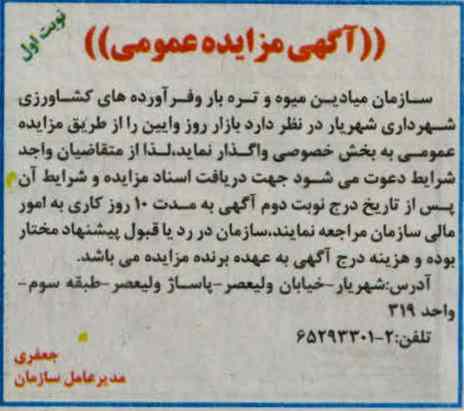 نوبت اول
((آگهی مزایده عمومی))
سازمان میادین میوه و تره بار وفرآورده های کشاورزی
شهرداری شهریار در نظر دارد بازار روز وایین را از طریق مزایده
عمومی به بخش خصوصی واگذار نماید،لذا از متقاضیان واجد
شرایط دعوت می شود جهت دریافت اسناد مزایده و شرایط آن
پس از تاریخ درج نوبت دوم آگهی به مدت ۱۰ روز کاری به امور
مالی سازمان مراجعه نمایند،سازمان در رد یا قبول پیشنهاد مختار
بوده و هزینه درج آگهی به عهده برنده مزایده می باشد.
آدرس:شهریار-خیابان ولیعصر-پاساژ ولیعصر-طبقه سوم-
واحد ۳۱۹
تلفن:۲-۶۵۲۹۳۳۰۱
جعفری
مدیرعامل سازمان